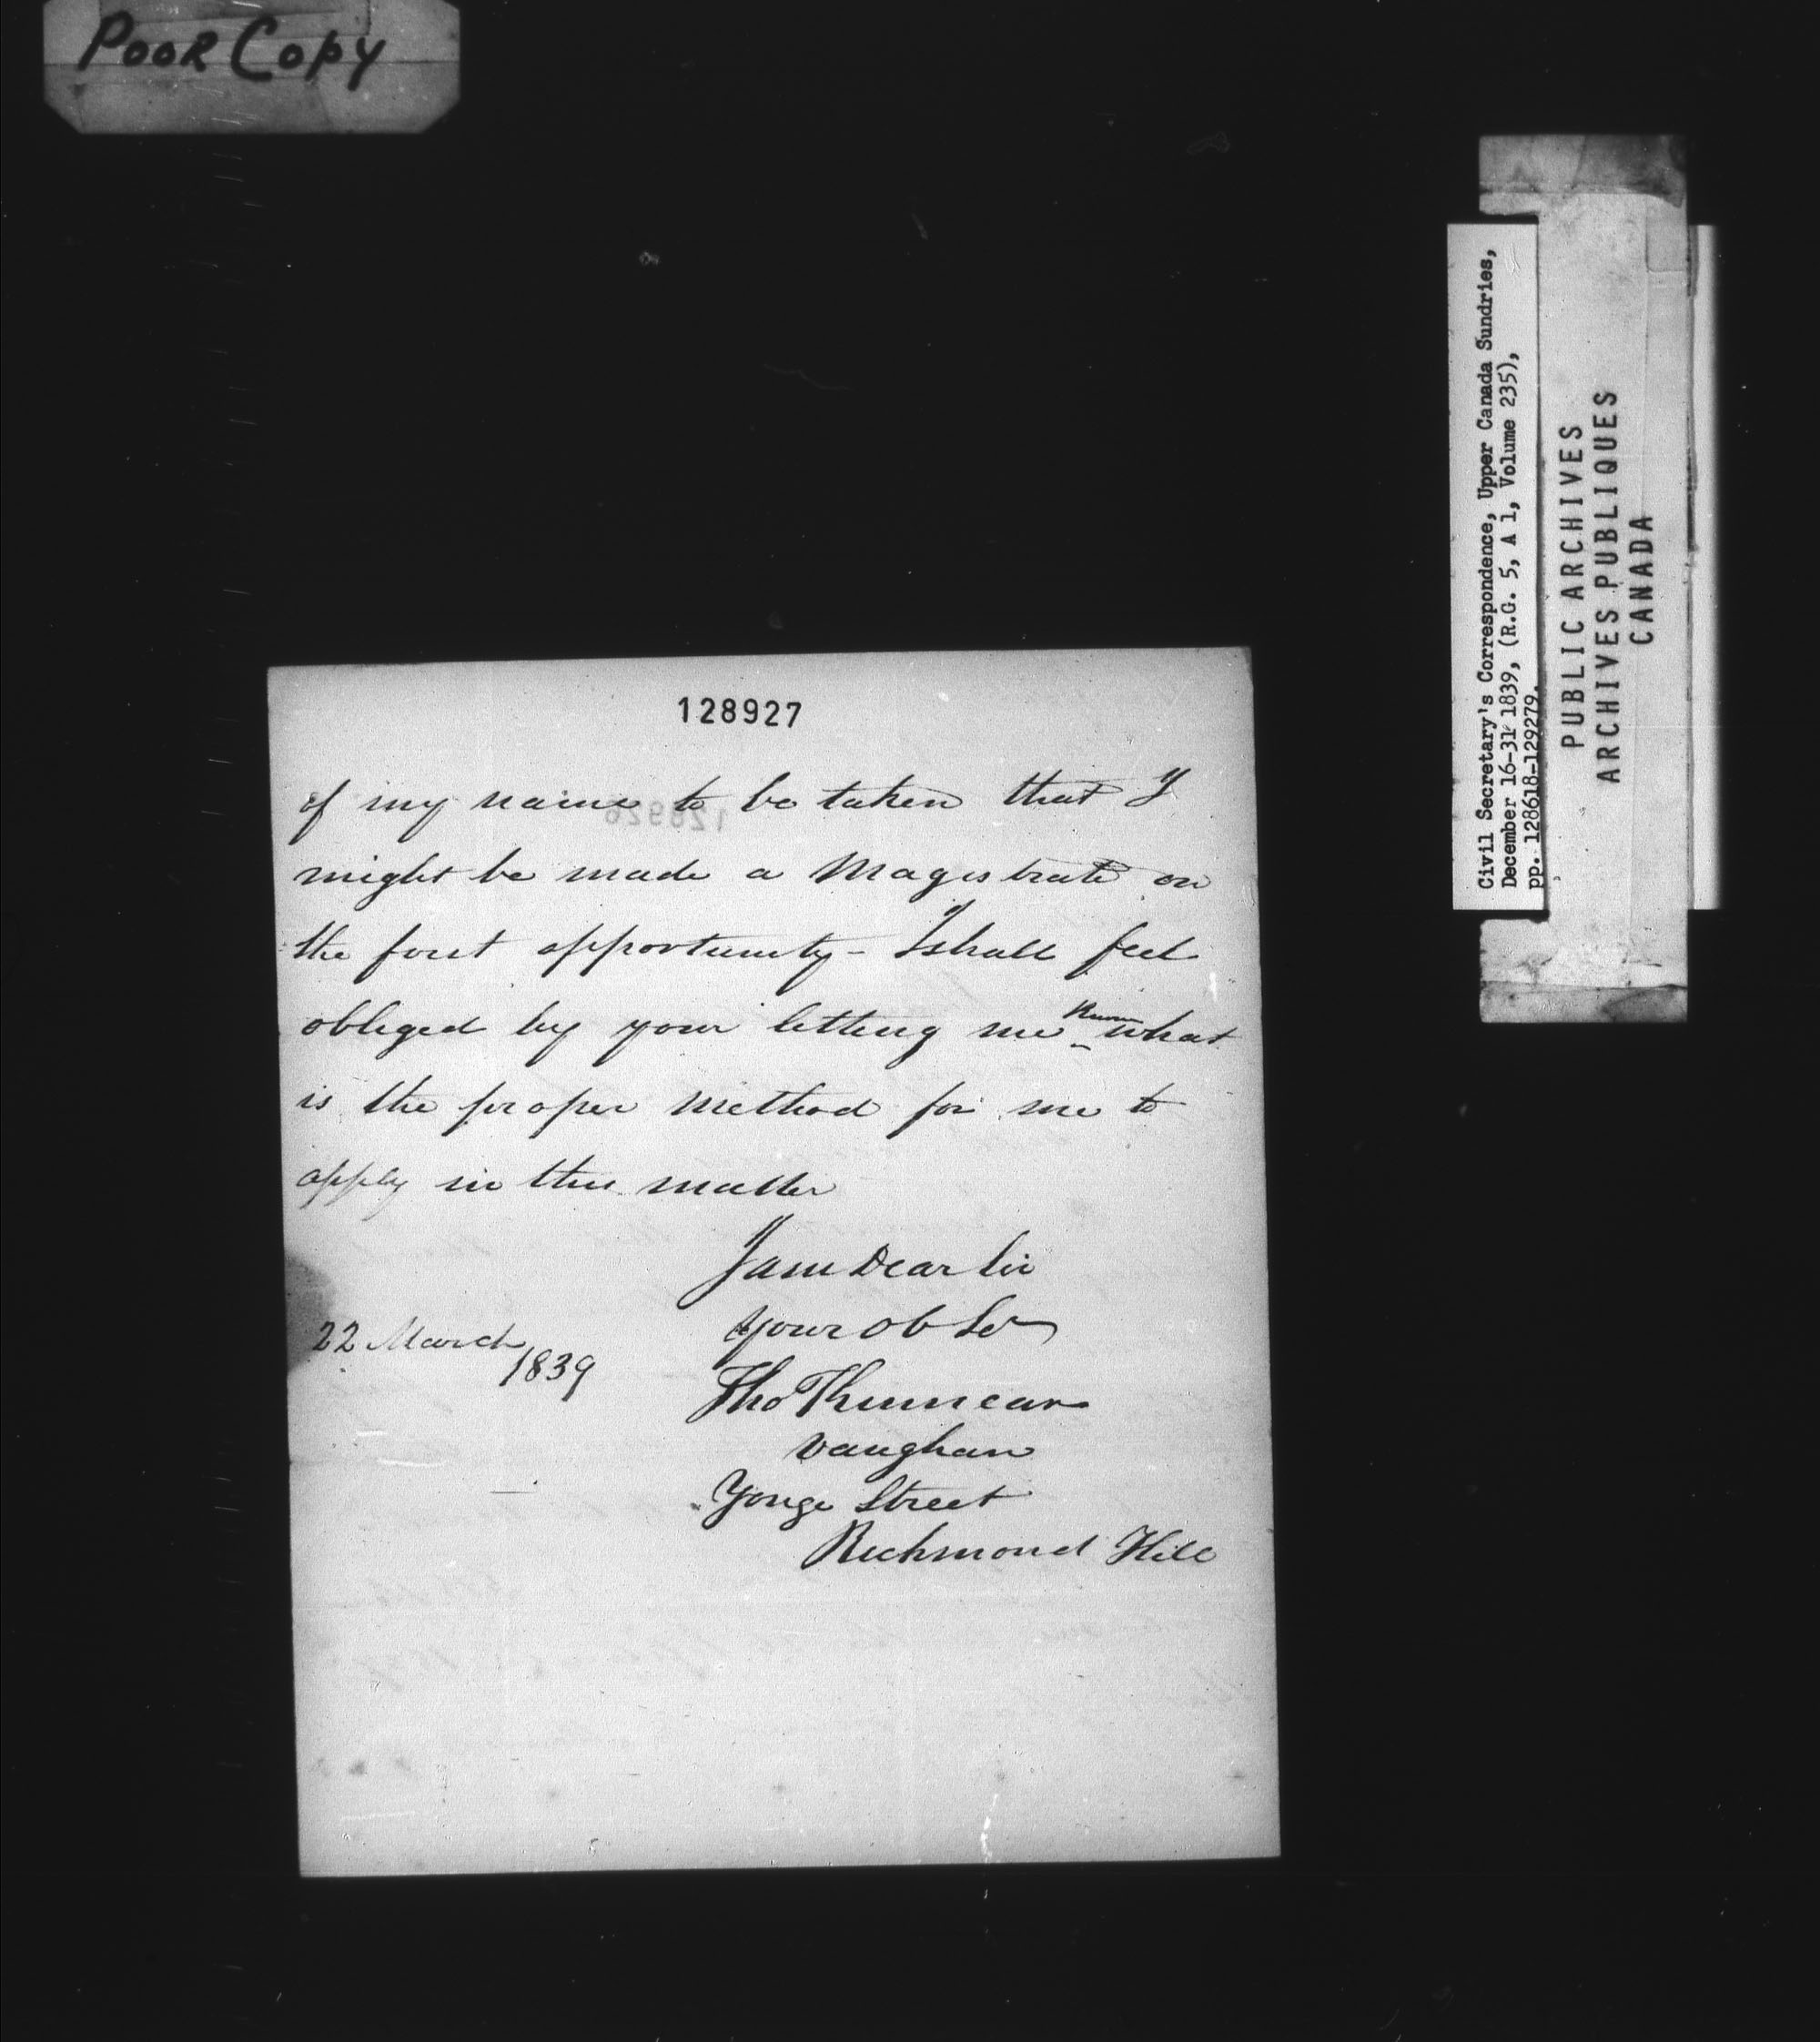 Poor Copy
Civil Secretary's Correspondence, Upper Canada Sundries,
December 16-31 1839, (R.G. 5, A 1, Volume 235),
pp. 128618-129279.
PUBLIC ARCHIVES
ARCHIVES PUBLIQUES
CANADA
128927
of my name to be taken that I
might be made a Magistrate on
the first opportunity - I shall feel
obliged by your letting me know what
is the proper Method for me to
apply in this matter
I am Dear Sir
your ob Ser
22 March
1839
Tho
Vaughan
Yonge Street
Richmond Hill